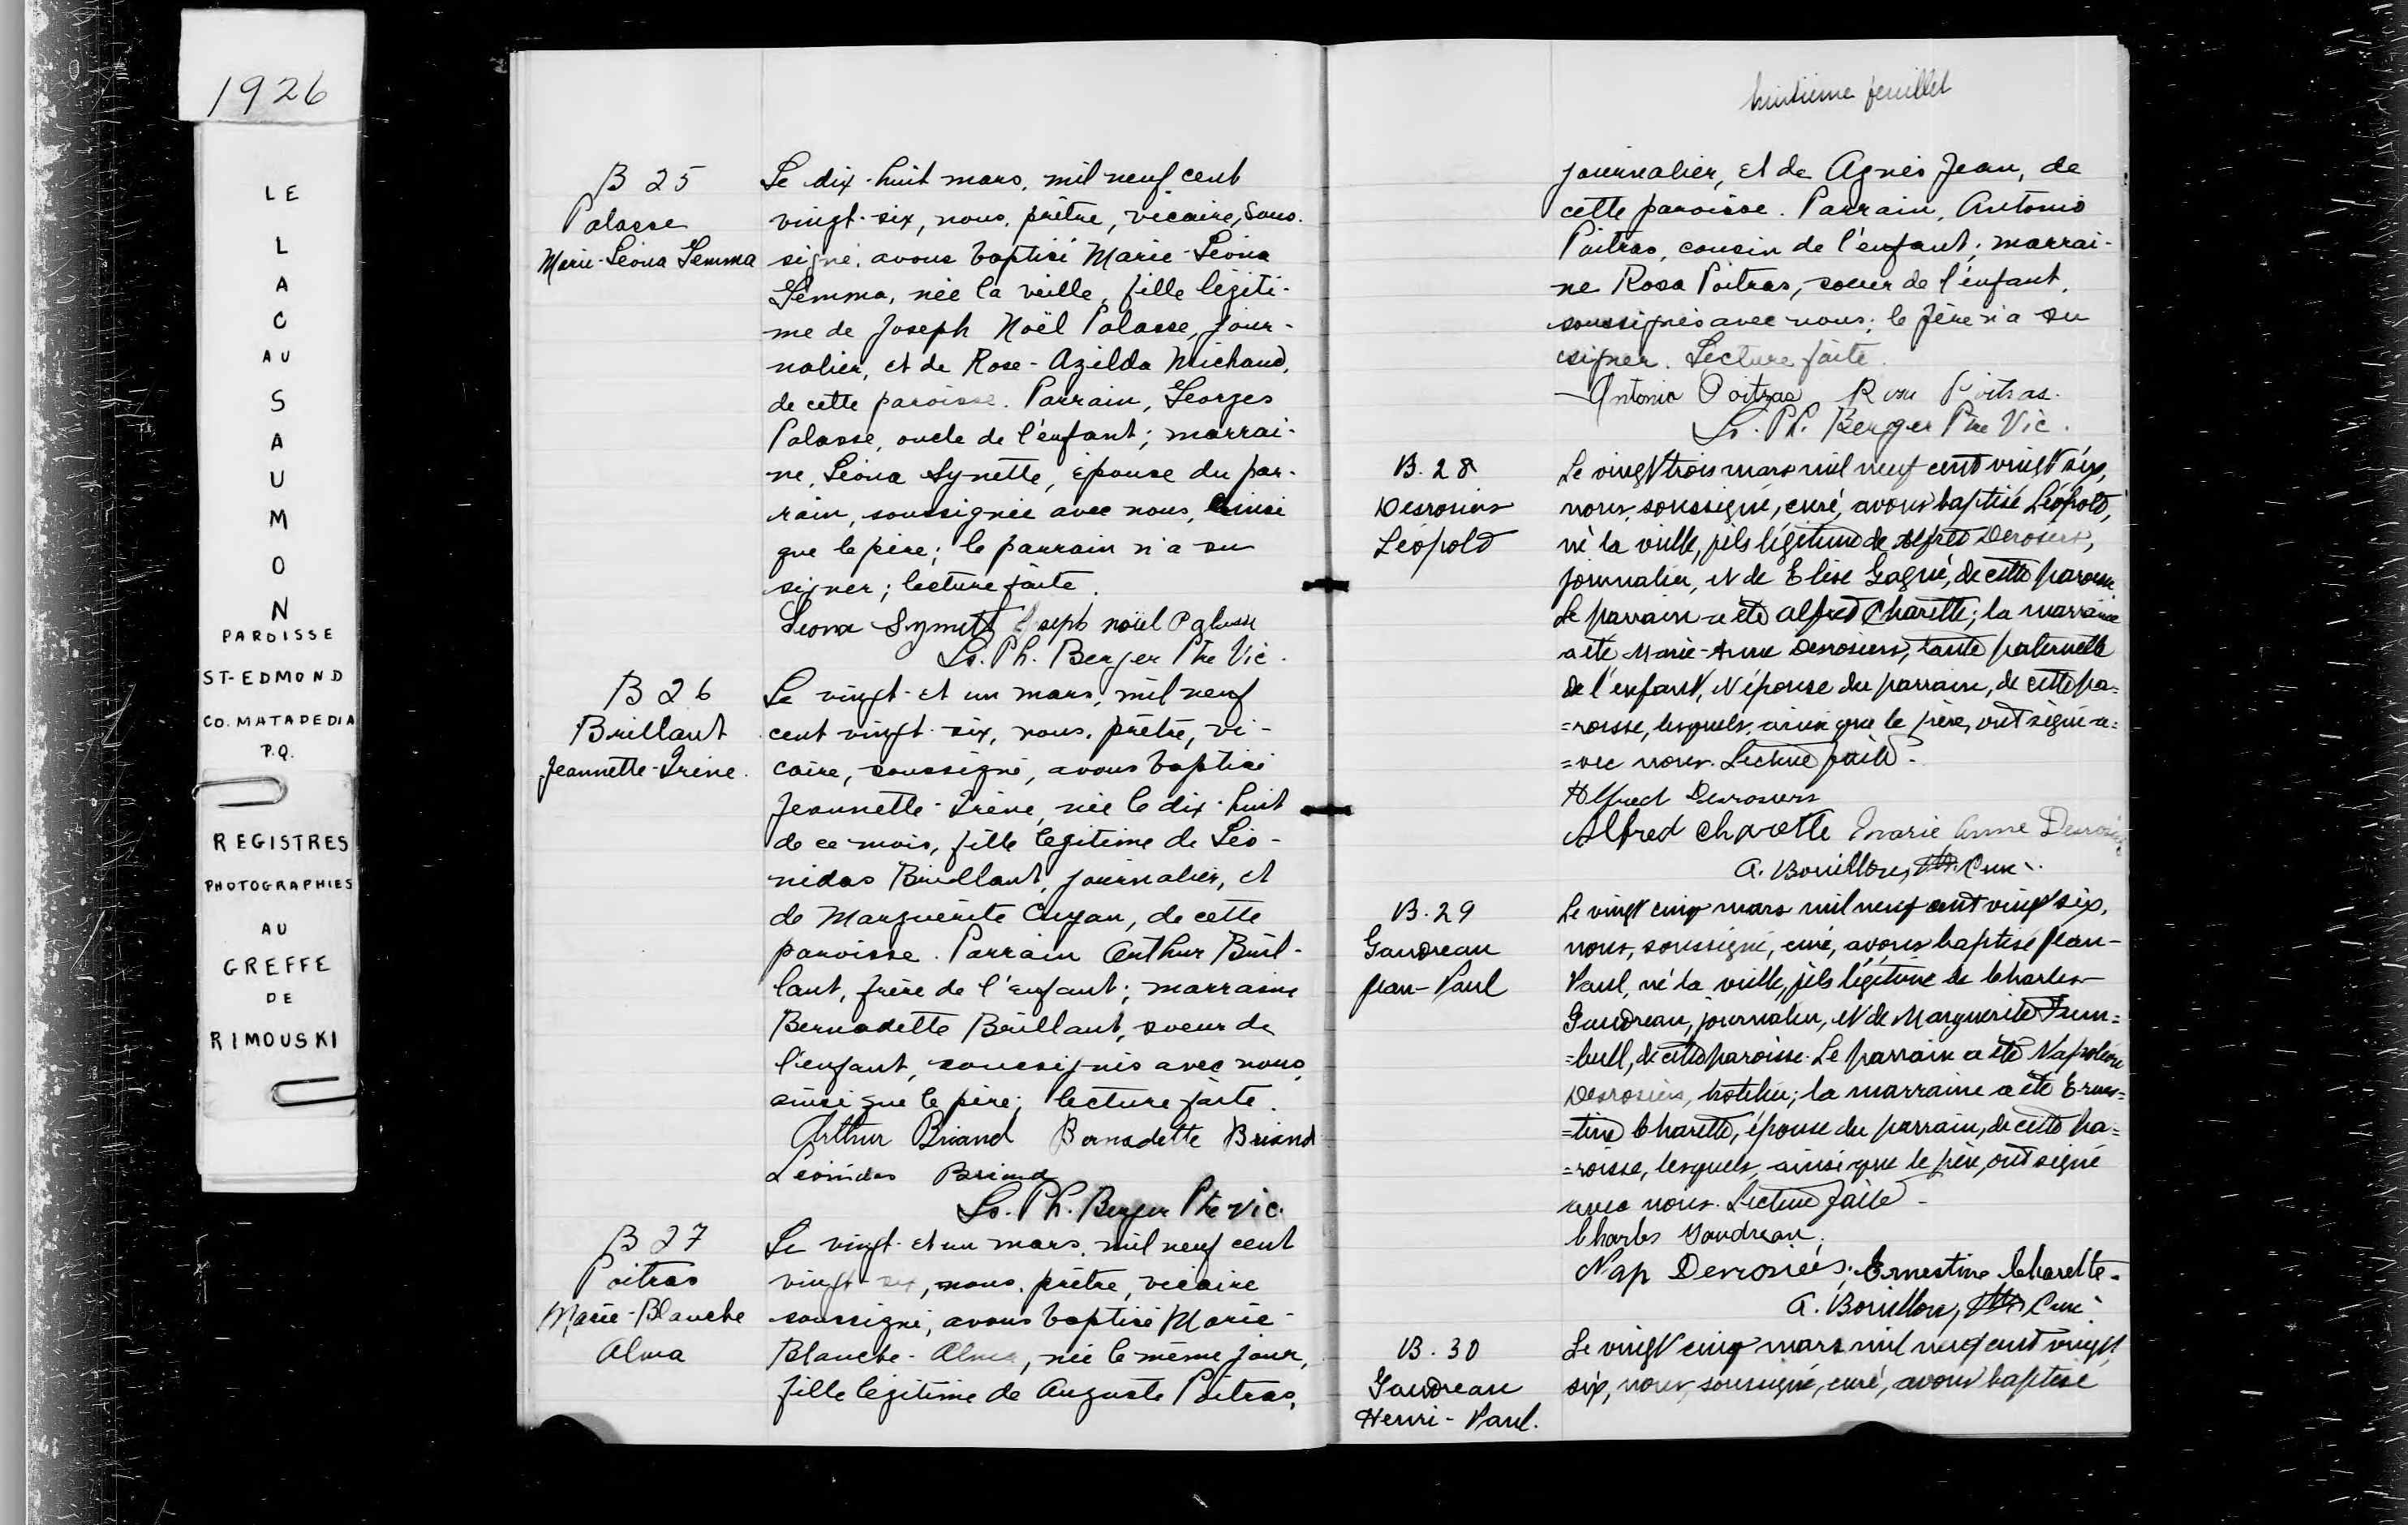 1926
LE
LAC
AU
SAUMON
PAROISSE
ST-EDMOND
CO. MATAPEDIA
P.Q.
REGISTRES
PHOTOGRAPHIES
AU
GREFFE
DE
RIMOUSKI
B 25
Palasse
Marie-Léona Gemma
Le dix-huit mars, mil neuf cent
vingt-six, nous, prêtre, vicaire, sous-
signé, avons baptisé Marie-Léona
Gemma, née la veille, fille légiti-
me de Joseph Noël Palasse, jour-
nalier, et de Rose-Azilda Michaud,
de cette paroisse. Parrain, Georges
Palasse, oncle de l'enfant; marrai-
ne, Léona Synette, épouse du par-
rain, soussignée avec nous, ainsi
que le père; le parrain n'a su
signer; lecture faite.
Leona Synett Joseph noüel Palasse
Ls. Ph. Berger Ptre Vic.
B 26
Brillant
Jeannette-Irène.
Le vingt-et un mars, mil neuf
cent vingt-six, nous, prêtre, vi-
caire, soussigné, avons baptisé
Jeannette-Irène, née le dix-huit
de ce mois, fille légitime de Léo-
nidas Brillant, journalier, et
de Marguérite , de cette
paroisse. Parrain Arthur Bril-
lant, frère de l'enfant; marraine
Bernadette Brillant, soeur de
l'enfant, soussignés avec nous,
ainsi que le père; lecture faite.
Arthur Briand Bernadette Briand
Léonidas Briand
Ls. Ph. Berger Ptre Vic.
B 27
Poitras
Marie-Blanche
Alma
Le vingt-et un mars, mil neuf cent
vingt-six, nous, prêtre, vicaire
soussigné, avons baptisé Marie-
Blanche-Alma, née le même jour,
fille légitime de Auguste Poitras,
huitième feuillet
journalier, et de Agnès Jean, de
cette paroisse. Parrain, Antonio
Poitras, cousin de l'enfant; marrai-
ne Rosa Poitras, soeur de l'enfant,
soussignés avec nous; le père n'a su
signer. Lecture faite.
Antonio Poitras Rosa Poitras.
Ls. Ph. Berger Ptre Vic.
B. 28
Desrosiers
Léopold
Le vingt trois mars mil neuf cent vingt six,
nous, soussigné, curé, avons baptisé Léopold,
né la veille, fils légitime de Alfred Desrosiers,
journalier, et de Elise Gagné, de cette paroisse.
Le parrain a été Alfred Charette; la marraine
a été Marie-Anne Desrosiers, tante paternelle
de l'enfant, et épouse du parrain, de cette pa=
=roisse, lesquels, ainsi que le père, ont signé a=
=vec nous. Lecture faite.
Alfred Desrosiers
Alfred Charette Marie Anne Desrosiers
A. Bouillon, Ptre Curé.
B. 29
Gaudreau
Jean-Paul
Le vingt cinq mars mil neuf cent vingt six,
nous, soussigné, curé, avons baptisé Jean-
Paul, né la veille, fils légitime de Charles
Gaudreau, journalier, et de Marguerite Trum=
=bull, de cette paroisse. Le parrain a été Napoléon
Desrosiers, hotelier; la marraine a été Ernes=
=tine Charette, épouse du parrain, de cette pa=
=roisse, lesquels, ainsi que le père, ont signé
avec nous. Lecture faite.
Charles Gaudreau,
Nap Desrosiers. Ernestine Charette.
A. Bouillon, Ptre Curé
B. 30
Gaudreau
Henri-Paul.
Le vingt cinq mars mil neuf cent vingt
six, nous, soussigné, curé, avons baptisé